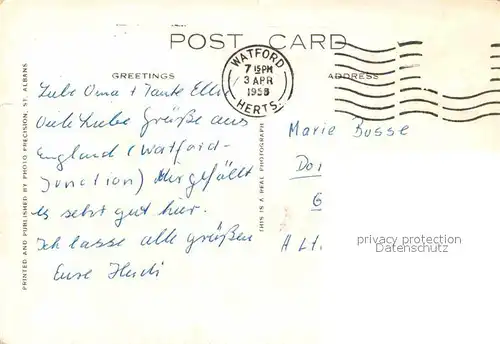 POST CARD
WATFORD
7 15 PM
3 APR
1958
HERTS.
GREETINGS
ADDRESS
Liebe Oma + Tante Elli,
Viele liebe Grüße aus
England (Watford-
Junction) Mir gefällt
es sehr gut hier.
Ich lasse alle grüßen
Eure Heidi
Marie Busse
Do
G
Alt.
privacy protection
by removing address
PRINTED AND PUBLISHED BY PHOTO PRECISION, ST. ALBANS
THIS IS A REAL PHOTOGRAPH